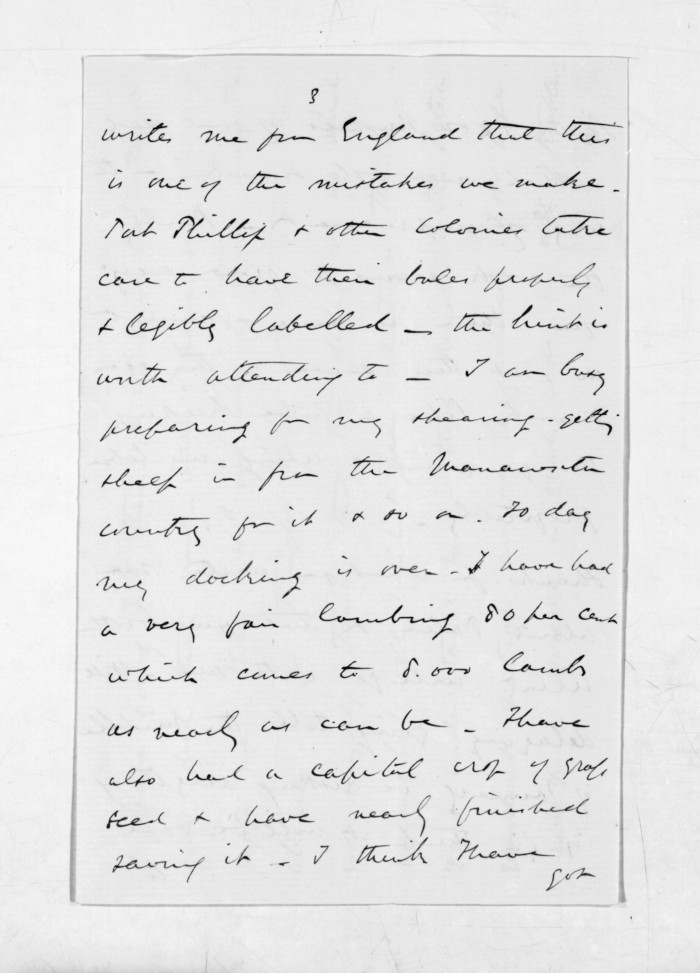 3
writes me from England that this
is one of the mistakes we make -
Port Phillip & other Colonies take
care to have their bales properly
& legibly labelled - the hint is
worth attending to - I am busy
preparing for my shearing - getting
sheep in from the Manawatu
country for it & so on. To day
my docking is over - I have had
a very fair lambing 80 per cent
which comes to 8.000 lambs
as nearly as can be - I have
also had a capital crop of grass
seed & have nearly finished
saving it - I think I have
got